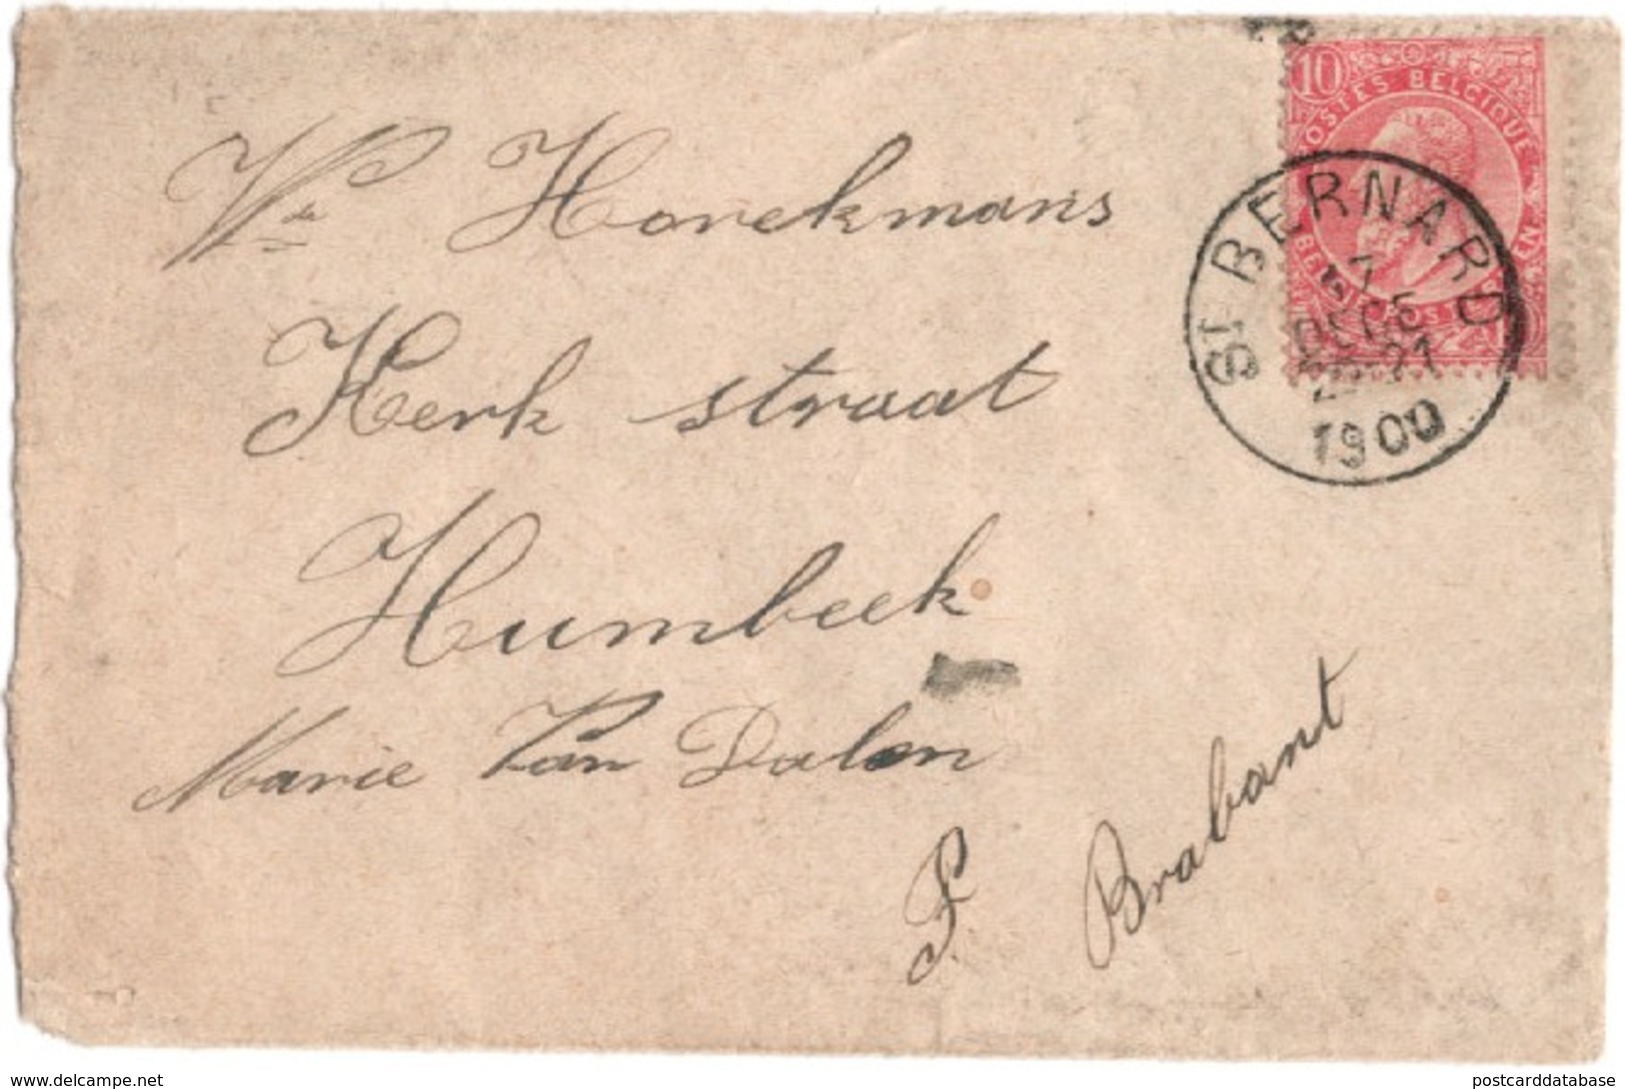 10
POSTES BELGIQUE
ST BERNARD
17
DEC
21
1900
Vve Honckmans
Kerk straat
Humbeek
Marie Van Dalen
P. Brabant
www.delcampe.net
postcarddatabase